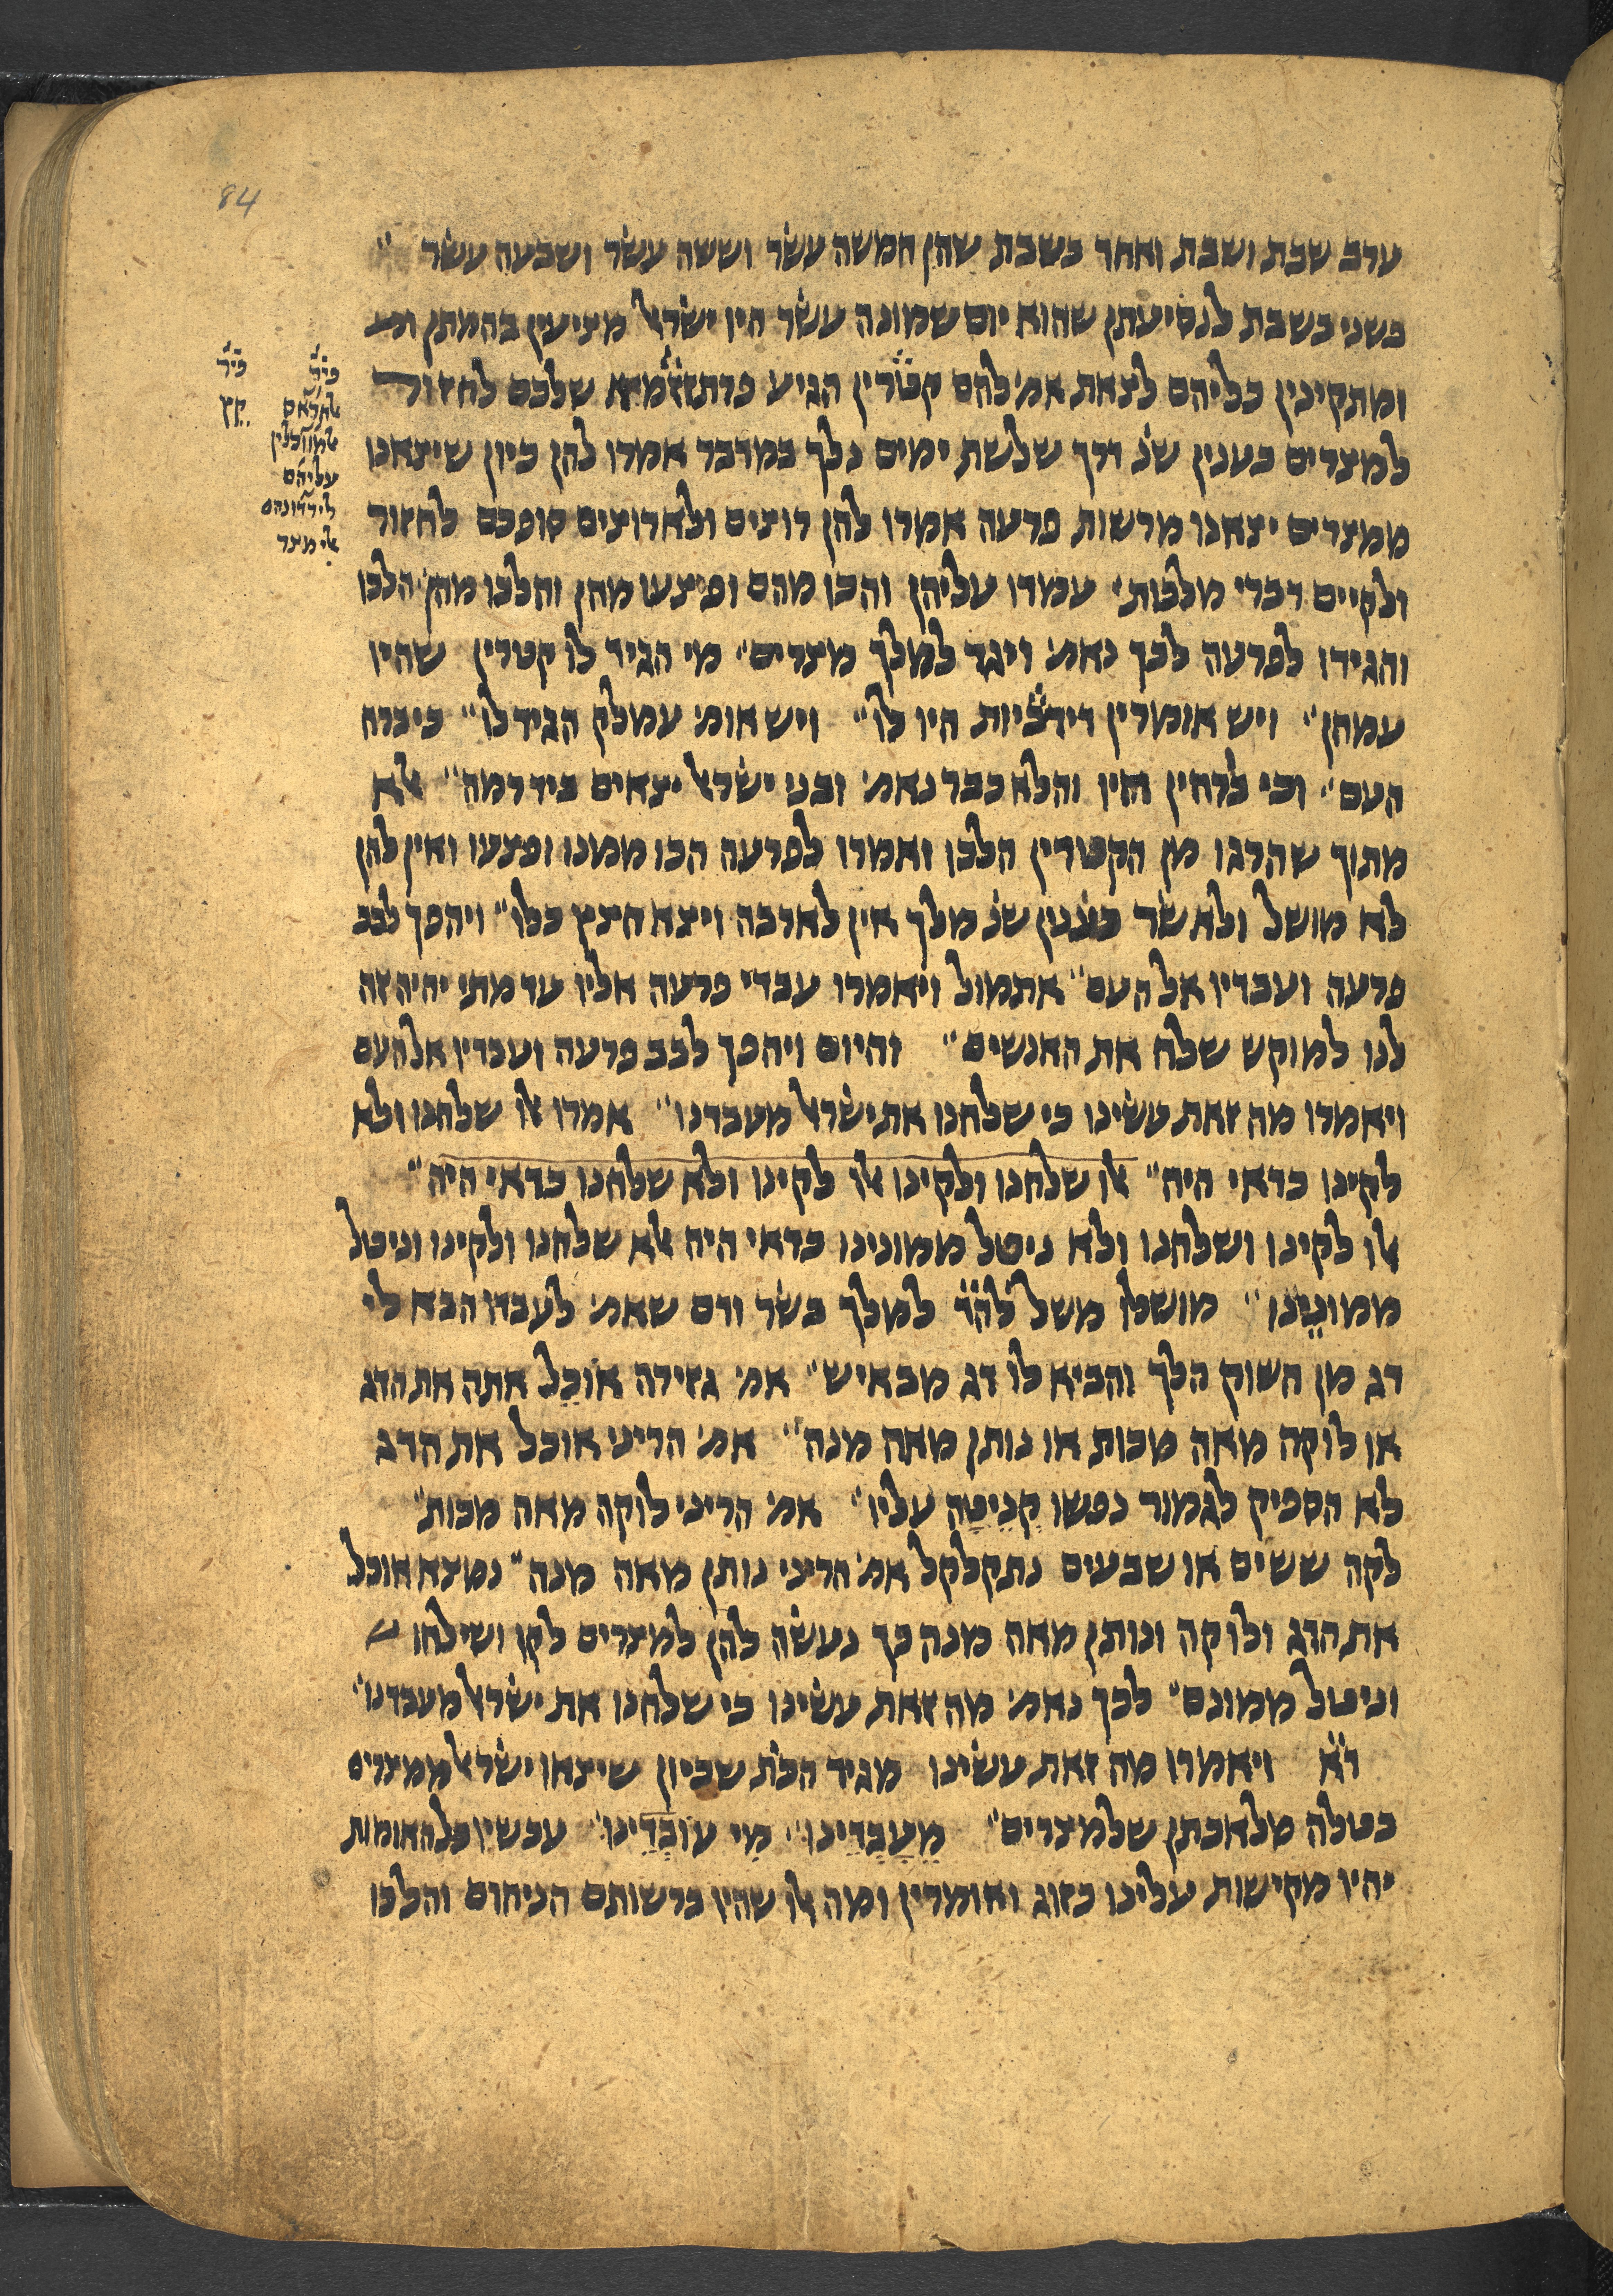 84
ערב שבת ושבת ואחר בשבת שהן חמשה עשר וששה עשר ושבעה עשר ״
בשני בשבת לנסיעתן שהוא יום שמונה עשר היו ישראל מציעין בהמתן
ומתקינין כליהם לצאת אמ׳ להם קטורין הגיע פרתזמיא שלכם לחזור
למצרים כענין שנ׳ דרך שלשת ימים נלך במדבר אמרו להן כיון שיצאנו
ממצרים יצאנו מרשות פרעה אמרו להן רוצים ולא רוצים סופכם לחזור
ולקיים דברי מלכות׳ עמדו עליהן והכו מהם ופיצעו מהן והלכו מהן הלכו
והגידו לפרעה לכך נאמ׳ ויגד למלך מצרים״ מי הגיד לו קטרין שהיו
עמהן״ ויש אומרין דידביות היו לו״ ויש אומ׳ עמלק הגיד לו״ כי ברח
העם״ וכי ברחין היו והלא כבר נאמ׳ ובני ישראל יצאים ביד רמה״ אלא
מתוך שהרגו מן הקטורין הלכו ואמרו לפרעה הכו ממנו ופצעו ואין להן
לא מושל ולא שר כענין שנ׳ מלך אין לארבה ויצא חצץ כלו״ ויהפך לבב
פרעה ועבדיו אל העם״ אתמול ויאמרו עבדי פרעה אליו עד מתי יהיה זה
לנו למוקש שלח את האנשים״ והיום ויהפך לבב פרעה ועבדיו אל העם
ויאמרו מה זאת עשינו כי שלחנו את ישראל מעבדנו״ אמרו אלו שלחנו ולא
לקינו כדאי היה״ אלו שלחנו ולקינו אלו לקינו ולא שלחנו כדאי היה״
אלו לקינו ושלחנו ולא ניטל ממונינו כדאי היה אלא שלחנו ולקינו וניטל
ממונינו״ מושלו משל למלך בשר ודם שאמ׳ לעבדו הבא לי
דג מן השוק הלך והביא לו דג מבאיש״ אמ׳ גזירה אוכל אתה את הדג
או לוקה מאה מכות או נותן מאה מנה״ אמ׳ הריני אוכל את הדג
לא הספיק לגמור נפשו קניטה עליו״ אמ׳ הריני לוקה מאה מכות״
לקה ששים או שבעים נתקלקל אמ׳ הריני נותן מאה מנה״ נמצא אוכל
את הדג ולוקה ונותן מאה מנה כך נעשה להן למצרים לקו ושילחו
וניטל ממונם״ לכך נאמ׳ מה זאת עשינו כי שלחנו את ישראל מעבדנו״
ד״א ויאמרו מה זאת עשינו מגיד הכת׳ שכיון שיצאו ישראל ממצרים
בטלה מלאכתן שלמצרים״ מעבדינו״ מי עובדינו״ עכשיו כל האומות
יהיו מקישות עלינו כזוג ואומרין ומה אלו שהיו ברשותם הניחום והלכו
עליהם